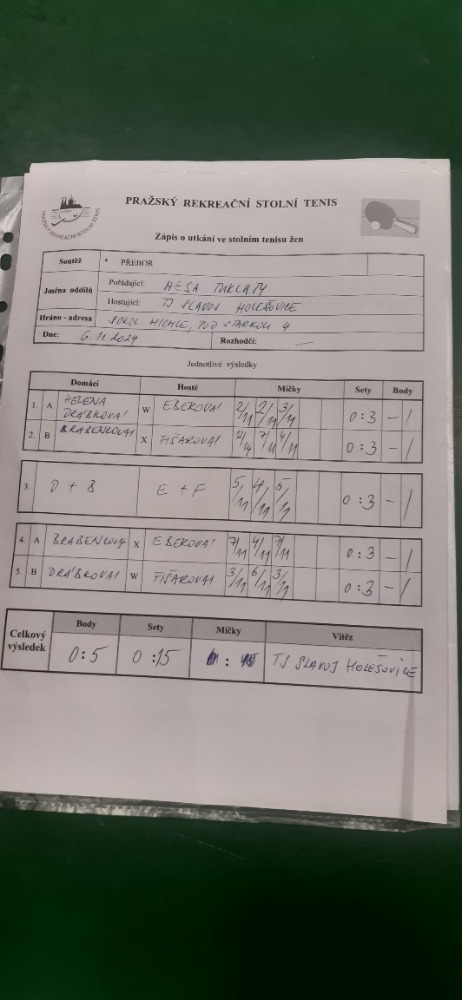 PRAŽSKÝ REKREAČNÍ STOLNÍ TENIS
PRAŽSKÝ REKREAČNÍ STOLNÍ TENIS
Zápis o utkání ve stolním tenisu žen
Soutěž * PŘEBOR
Jména oddílů Pořádající: MESA TUKLATY
Hostující: TJ SLAVOJ HOLEŠOVICE
Hráno - adresa SOKOL MICHLE, POD STÁRKOU 4
Dne: 6.11.2024 Rozhodčí: —
Jednotlivé výsledky
Domácí Hosté Míčky Sety Body
1. A HELENA DRÁBKOVÁ W EBEROVÁ 2/11 2/11 3/11 0:3 - 1
2. B BRABENCOVÁ X FIŠAROVÁ 7/11 4/11 0:3 - 1
3. D + B E + F 5/11 4/11 5/11 0:3 - 1
4. A BRABENCOVÁ X EBEROVÁ 7/11 4/11 7/11 0:3 - 1
5. B DRÁBKOVÁ W FIŠAROVÁ 3/11 6/11 3/11 0:3 - 1
Celkový výsledek Body Sety Míčky Vítěz
0:5 0:15 : TJ SLAVOJ HOLEŠOVICE